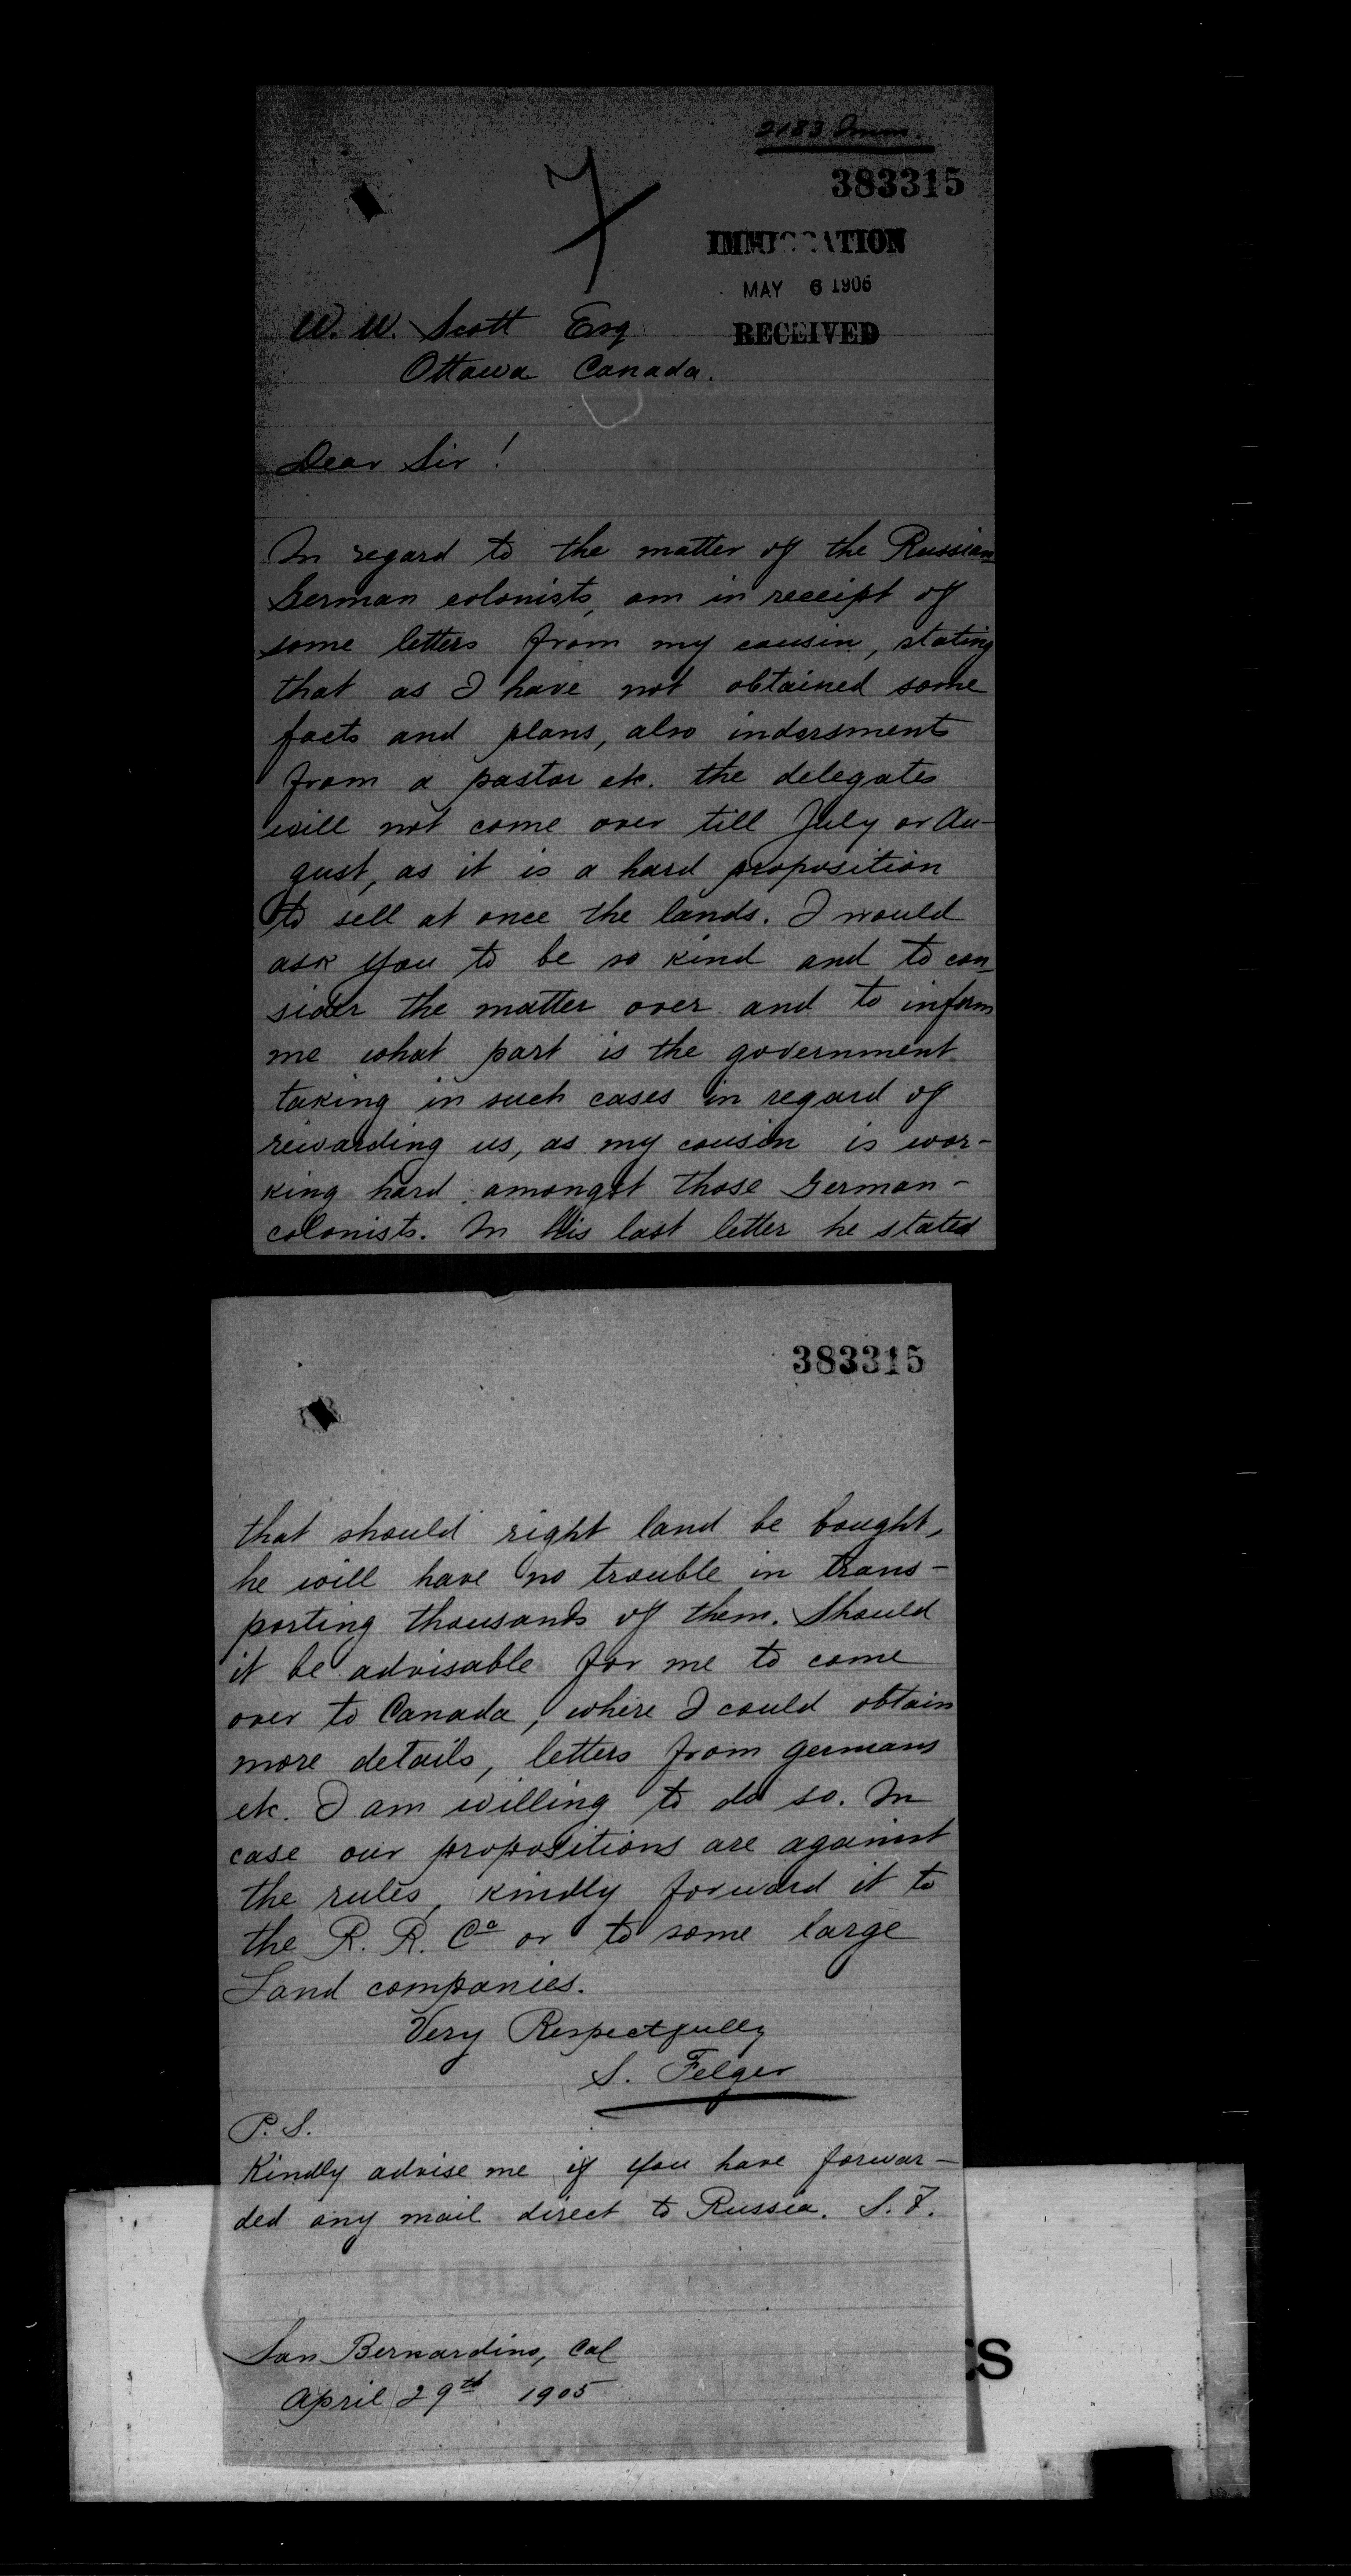 2183 Imm.
383315
7
IMMIGRATION
MAY 6 1905
RECEIVED
W. W. Scott Esq
Ottawa Canada.
Dear Sir!
In regard to the matter of the Russian
German colonists, am in receipt of
some letters from my cousin, stating
that as I have not obtained some
facts and plans, also indorsments
from a pastor etc. the delegates
will not come over till July or Au-
gust, as it is a hard proposition
to sell at once the lands. I would
ask you to be so kind and to con-
sider the matter over and to inform
me what part is the government
taking in such cases in regard of
rewarding us, as my cousin is wor-
king hard amongst those German-
colonists. In his last letter he stated
383315
that should right land be bought,
he will have no trouble in trans-
porting thousands of them. Should
it be advisable for me to come
over to Canada, where I could obtain
more details, letters from germans
etc. I am willing to do so. In
case our propositions are against
the rules, kindly forward it to
the R. R. Co or to some large
Land companies.
Very Respectfully
S. Felger
P. S.
Kindly advise me if you have forwar-
ded any mail direct to Russia. S. F.
PUBLIC ARCHIVES
San Bernardino, Cal
April 29th 1905